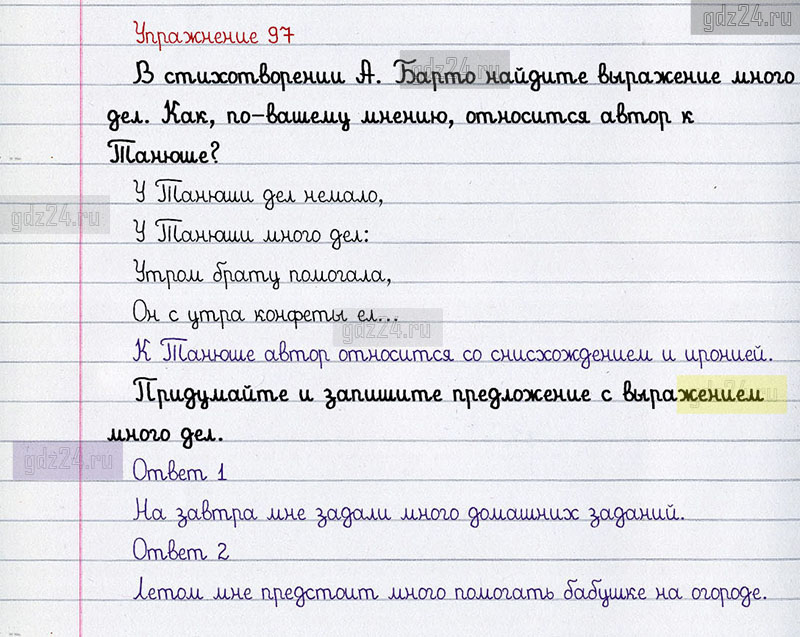 gdz24.ru
Упражнение 97
gdz24.ru
В стихотворении А. Барто найдите выражение много
дел. Как, по-вашему мнению, относится автор к
Танюше?
У Танюши дел немало,
gdz24.ru
У Танюши много дел:
Утром брату помогала,
Он с утра конфеты ел...
gdz24.ru
К Танюше автор относится со снисхождением и иронией.
Придумайте и запишите предложение с выражением
gdz24.ru
много дел.
gdz24.ru
Ответ 1
На завтра мне задали много домашних заданий.
Ответ 2
Летом мне предстоит много помогать бабушке на огороде.